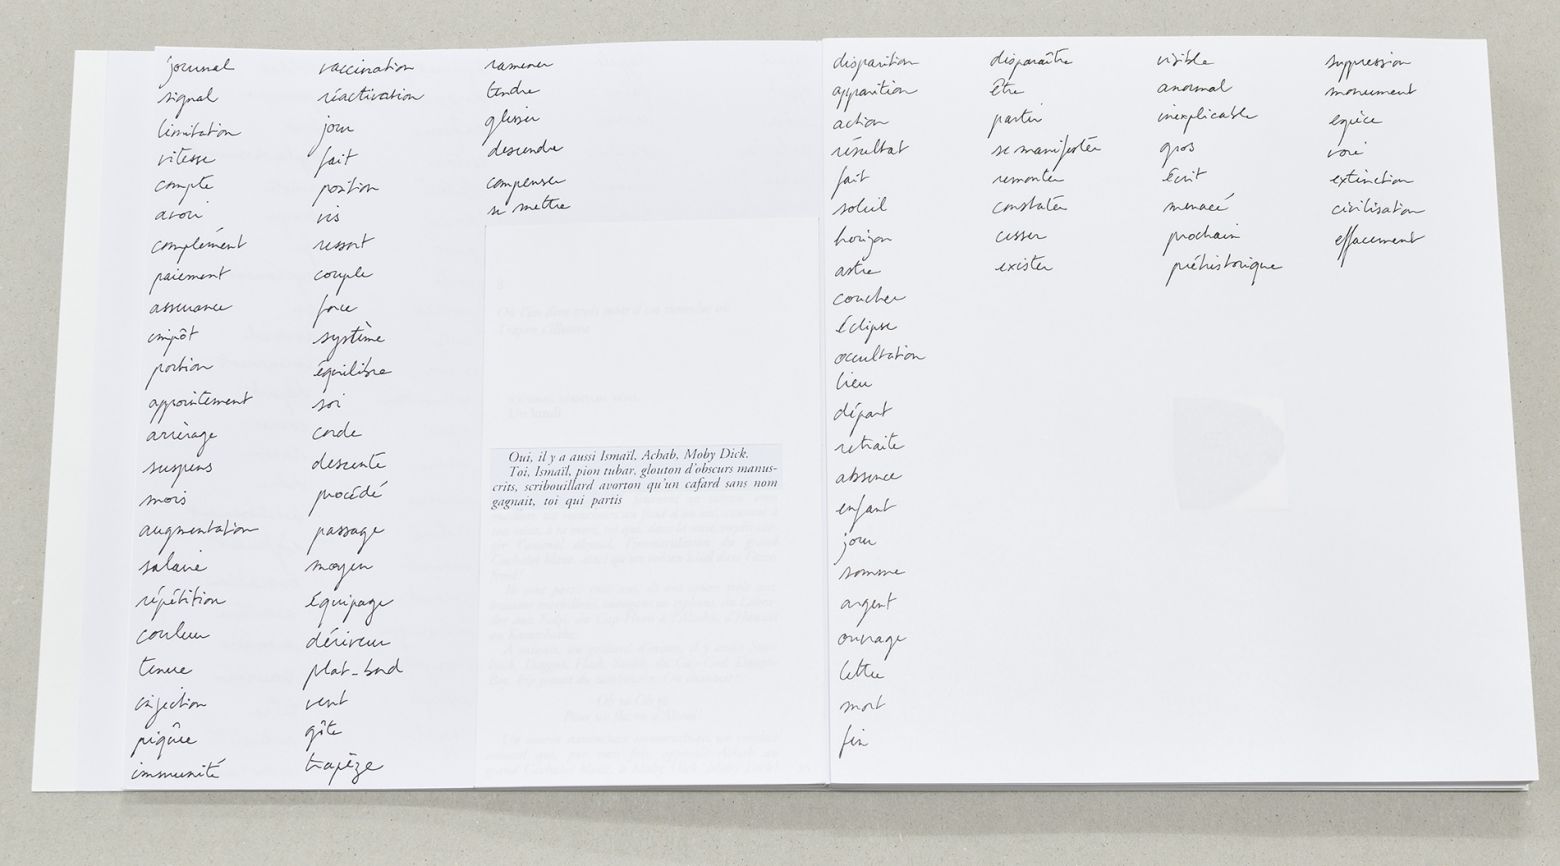 journal
signal
limitation
vitesse
compte
avoir
complément
paiement
assurance
impôt
portion
appointement
arrérage
suspens
mois
augmentation
salaire
répétition
couleur
tenue
injection
piqûre
immunité
vaccination
réactivation
jour
fait
position
vis
ressort
couple
force
système
équilibre
soi
corde
descente
procédé
passage
moyen
équipage
dériveur
plat-bord
vent
gîte
trapèze
ramener
tendre
glisser
descendre
compenser
se mettre
Oui, il y a aussi Ismaïl, Achab, Moby Dick.
Toi, Ismaïl, pion tubar, glouton d'obscurs manus-
crits, scribouillard avorton qu'un cafard sans nom
gagnait, toi qui partis
disparition
apparition
action
résultat
fait
soleil
horizon
astre
coucher
éclipse
occultation
lieu
départ
retraite
absence
enfant
jour
somme
argent
ouvrage
lettre
mort
fin
disparaître
être
partir
se manifester
remonter
constater
cesser
exister
visible
anormal
inexplicable
gros
écrit
menacé
prochain
préhistorique
suppression
monument
espèce
voie
extinction
civilisation
effacement